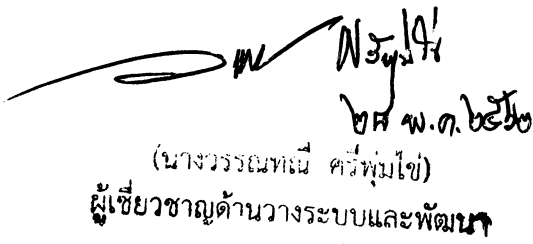 ๒๘ พ.ค. ๒๕๖๒
(นางวรรณทณี ศรีพุ่มไข่)
ผู้เชี่ยวชาญด้านวางระบบและพัฒนา